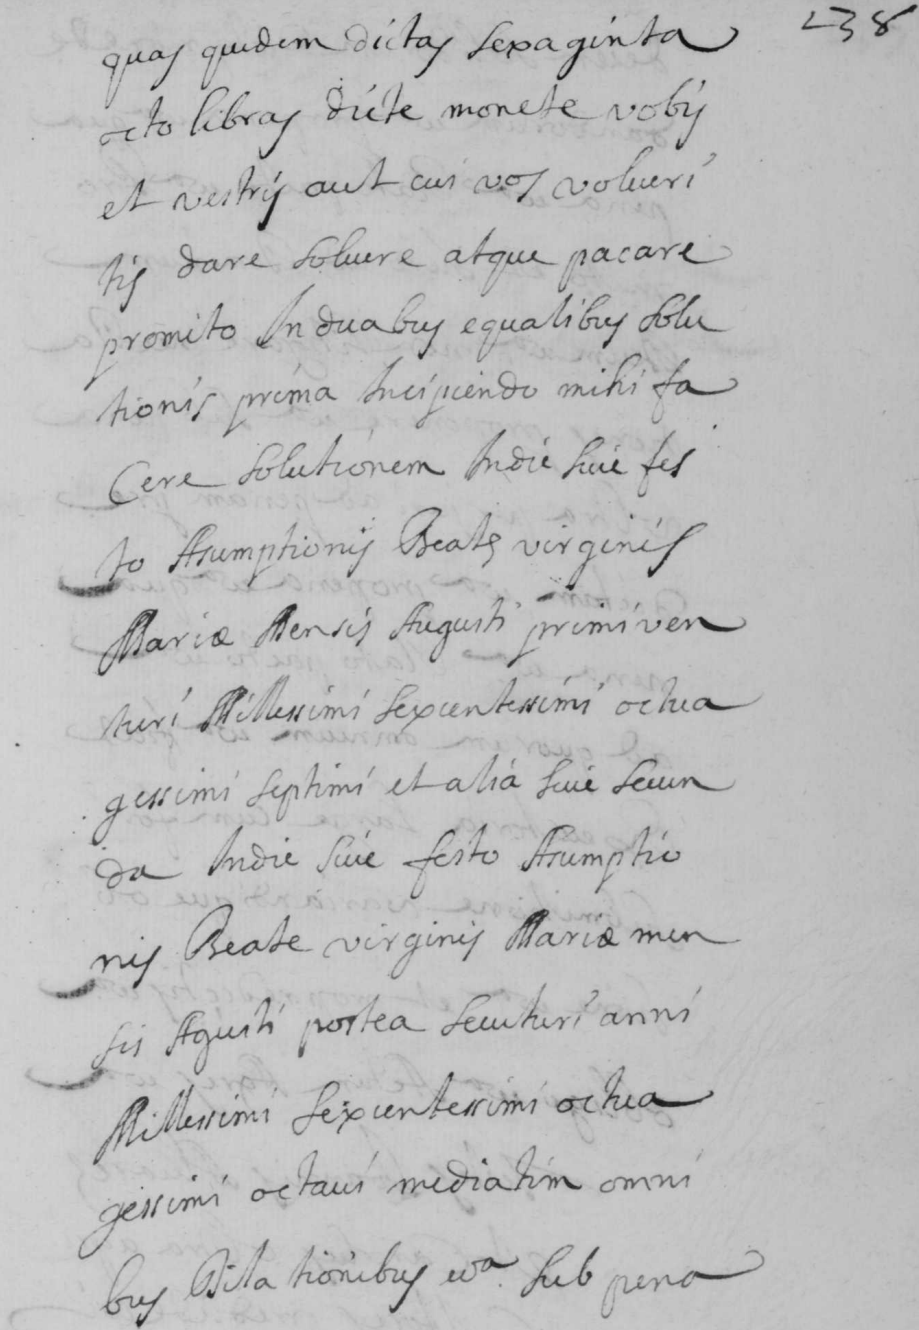 238
quas quidem dictas sexaginta
octo libras dicte monete vobis
et vestris aut cui vos volueri
tis dare solvere atque pacare
promito In duabus equalibus solu
tionis prima Incipiendo mihi fa
Cere solutionem Indie sive fes
to Asumptionis Beate virginis
Mariæ Mensis Augusti primi ven
turi Millessimi sexcentessimi octua
gessimi septimi et alia sive secun
da Indie sive festo Asumptio
nis Beate virginis Mariæ men
sis Agusti postea secuturi anni
Millessimi sexcentessimi octua
gessimi octavi mediatim omni
bus Dilationibus etca. sub pena